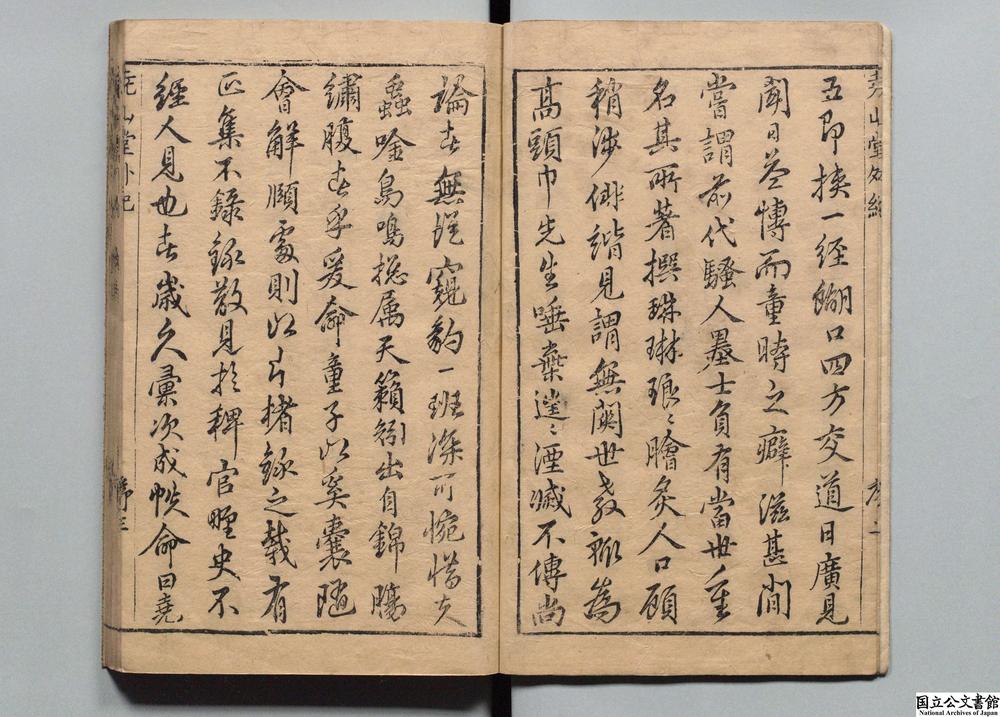 堯山堂外紀
序二
五即挟一经餬口四方交道日廣見
聞日益慱而童時之癖滋甚間
嘗謂前代騷人墨士負有當世重
名其所著撰珠琳琅〻膾炙人口顧
稍涉俳諧見謂無関世教輒為
高頭巾先生唾棄遂〻湮滅不傳尚
論者無従窺豹一班深可惋惜夫
蟲吟鳥鳴揔属天籟矧出自錦膓
繡腹者乎爰命童子以奚囊随
會解頤處則以片楮錄之載有
正集不錄錄散見於稗官野史不
經人見也者歲久彙次成帙命曰堯
堯山堂外紀
序三
国立公文書館
National Archives of Japan